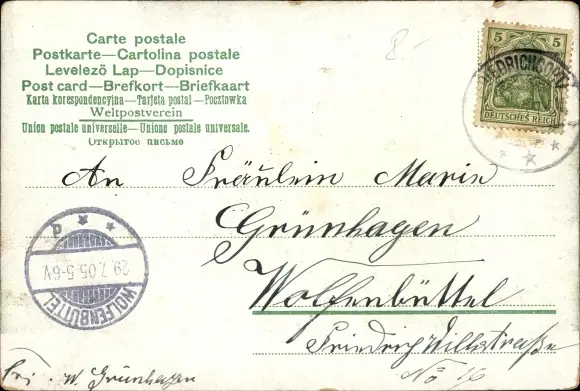 Carte postale
Postkarte—Cartolina postale
Levelező Lap—Dopisnice
Post card—Brefkort—Briefkaart
Karta korespondencyjna—Tarjeta postal—Pocztowka
Weltpostverein
Union postale universelle—Unione postale universale.
Открытое письмо
8.-
5 5
DEUTSCHES REICH
An Fräulein Marie
Grünhagen
Wolfenbüttel
Friedrich Willstraße
No 16
WOLFENBÜTTEL
29.7.05.5-6V.
P
W. Grünhagen